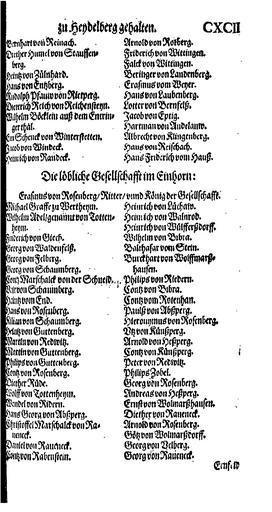 zu Heydelberg gehalten. CXCII
Bernhart von Reinach.
Diether Hummel von Stauffen-
berg.
Heintz von Zülnhard.
Hans von Entzberg.
Rudolph Pfauw von Rietperg.
Dietrich Reich von Reichensteyn.
Wilhelm Böcklein auß dem Enttin-
ger thal.
Schenck von Winterstetten.
Jacob von Windeck.
Heinrich von Randeck.
Arnold von Rotberg.
Friderich von Wittingen.
Falck von Wittingen.
Beringer von Landenberg.
Erasmus von Weyer.
Hans von Laubenberg.
Lotter von Bernfelß.
Jacob von Eptig.
Hartman von Andelauw.
Albrecht von Klingenberg.
Hans von Reischach.
Hans Friderich vom Hauß.
Die löbliche Gesellschafft im Einhorn:
Erasmus von Rosenberg/ Ritter/ unnd König der Gesellschafft.
Michael Graffe zu Wertheym.
Wilhelm Adelgemainn von Totten-
heym.
Friderich von Giech.
Georg von Waldenfelß.
Georg von Felberg.
Georg von Schaumberg.
Contz Marschalck von der Schneid.
Veit von Schauinberg.
Hans von End.
Hans von Rosenberg.
Kilian von Schaumberg.
Heintz von Guttenberg.
Martin von Redwitz.
Mattin von Guttenberg.
Philips von Guttenberg.
Contz von Rosenberg.
Diether Rüde.
Wolff von Tottenheym.
Wendel von Ridern.
Hans Georg von Abßperg.
Christoffel Marschalck von Ra-
neneck.
Daniel von Raueneck.
Contz von Rabenstein.
Heinrich von Lüchaw.
Heinrich von Walnrod.
Heinrich von Wülfferßdorff.
Wilhelm von Bibra.
Balthasar von Stein.
Burckhart von Wolffmarß-
hausen.
Philips von Riedern.
Contz von Bibra.
Contz von Rotenhan.
Paulß von Abßperg.
Hieronymus von Rosenberg.
Utz von Künßperg.
Arnold von Heßperg.
Contz von Künßperg.
Peter von Redwitz.
Philips Zobel.
Georg von Rosenberg.
Andreas von Heßperg.
Ernst von Wolmarßhausen.
Diether von Raueneck.
Arnold von Rosenberg.
Götz von Wolmarßdorff.
Georg von Velberg.
Georg von Raueneck.